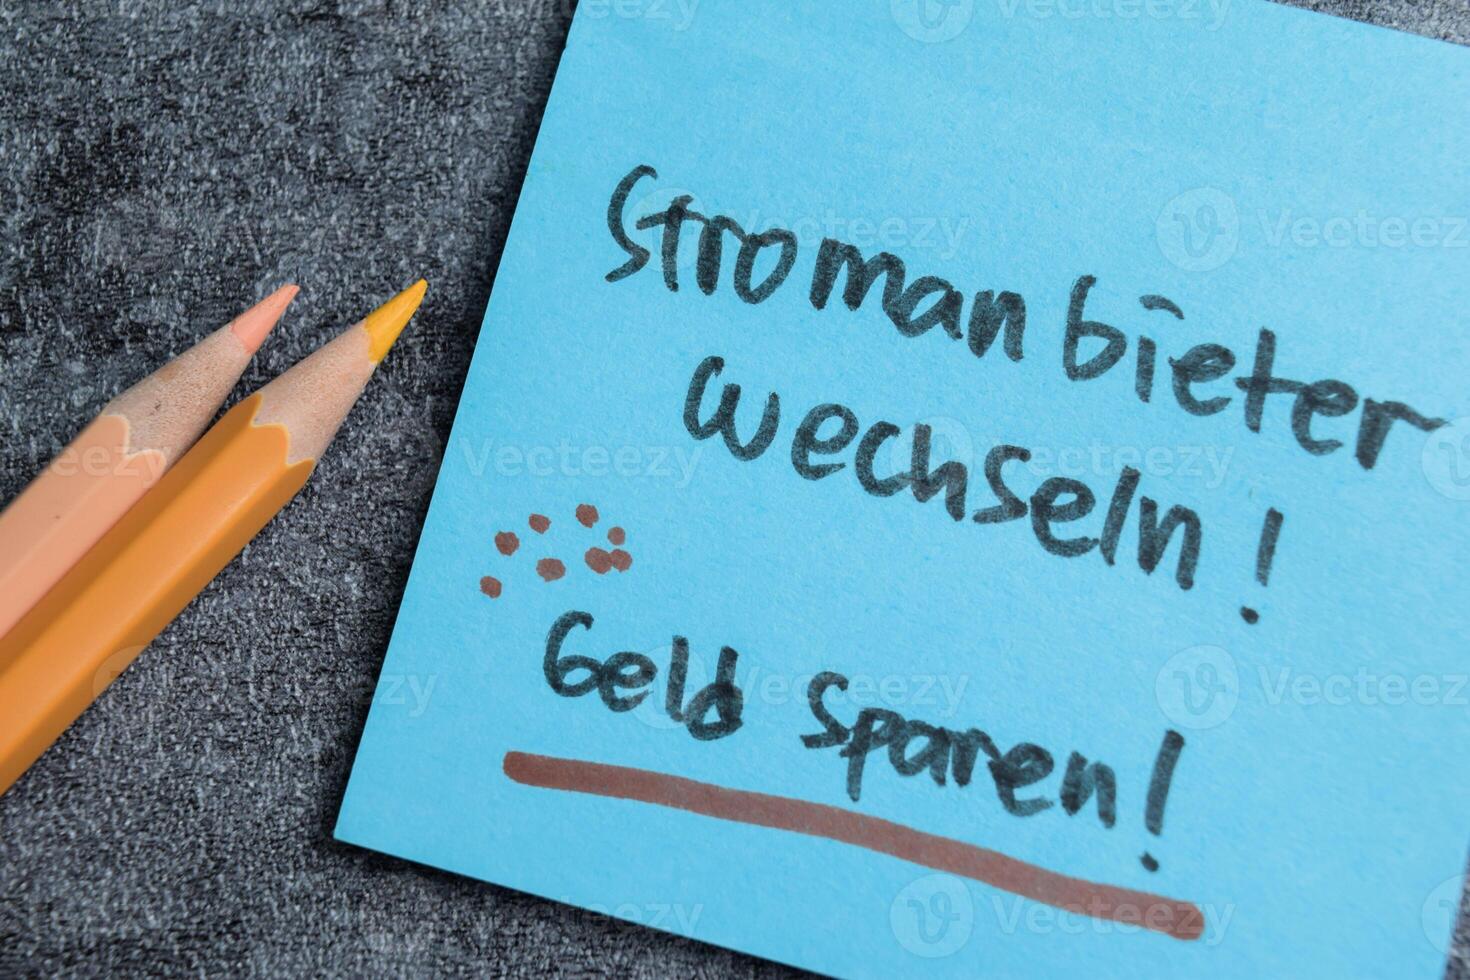 Stromanbieter
wechseln!
Geld sparen!
Vecteezy
Vecteezy
Vecteezy
Vecteezy
Vecteezy
Vecteezy
Vecteezy
Vecteezy
Vecteezy
Vecteezy
Vecteezy